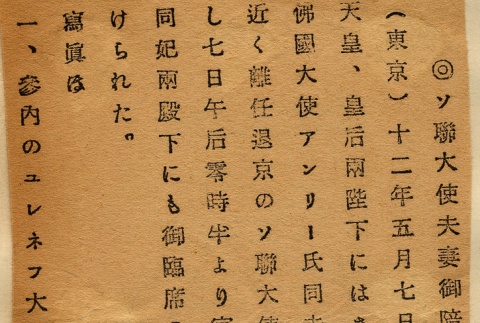 ◎ソ聯大使夫妻御陪
(東京)十二年五月七日
天皇、皇后兩陛下にはき
佛國大使アンリー氏同夫
近く離任退京のソ聯大使
し七日午后零時半より宮
同妃兩殿下にも御臨席
けられた。
寫眞は
一、參內のユレネフ大